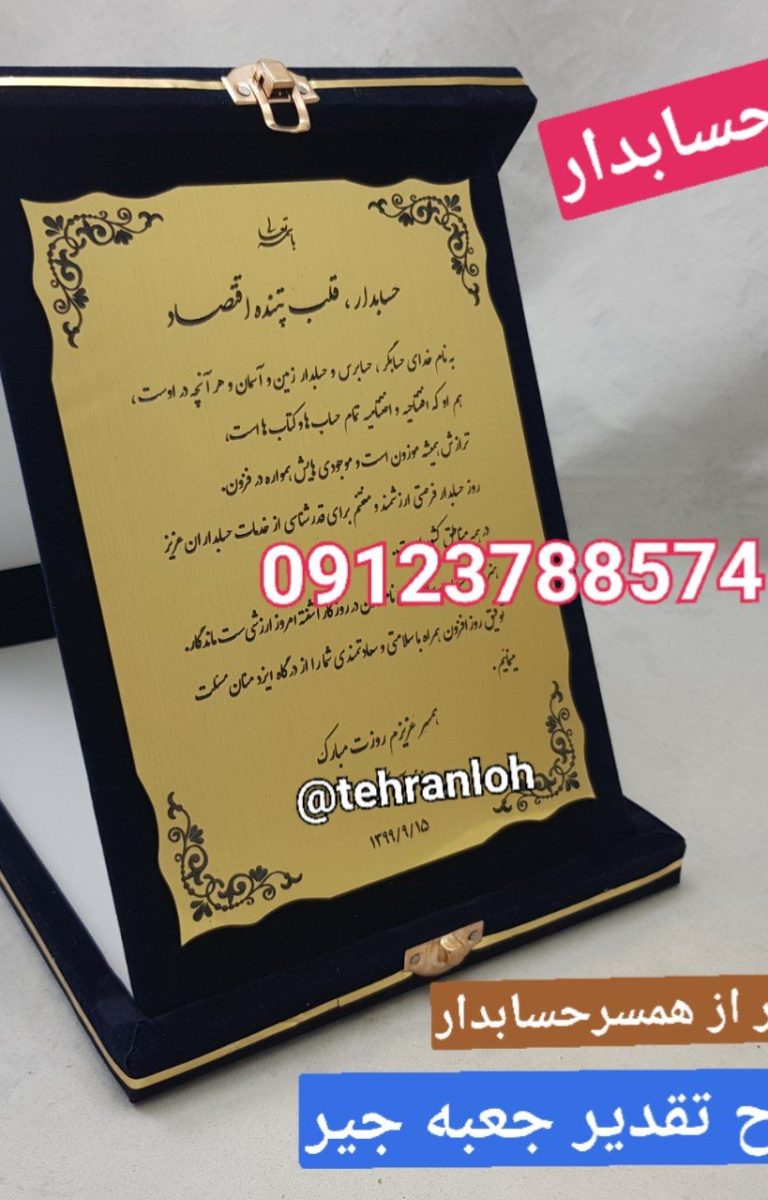 حسابدار
باسمه تعالی
حسابدار، قلب تپنده اقتصاد
به نام خدای حسابگر، حسابرس و حسابدار زمین و آسمان و هر آنچه در اوست،
هم او که افتتاحیه و اختتامیه تمام حساب ها و کتاب ها است،
ترازش همیشه موزون است و موجودی هایش همواره در فزون.
روز حسابدار فرصتی ارزشمند و مغتنم برای قدرشناسی از خدمات حسابداران عزیز
در همه مناطق
09123788574
در روزگار آشفته امروز ارزشی ست ماندگار.
توفیق روز افزون همراه با سلامتی و سعادتمندی شما را از درگاه ایزد منان مسئلت
می‌نمایم.
همسر عزیزم روزت مبارک
@tehranloh
۱۳۹۹/۹/۱۵
ر از همسرحسابدار
ح تقدیر جعبه جیر